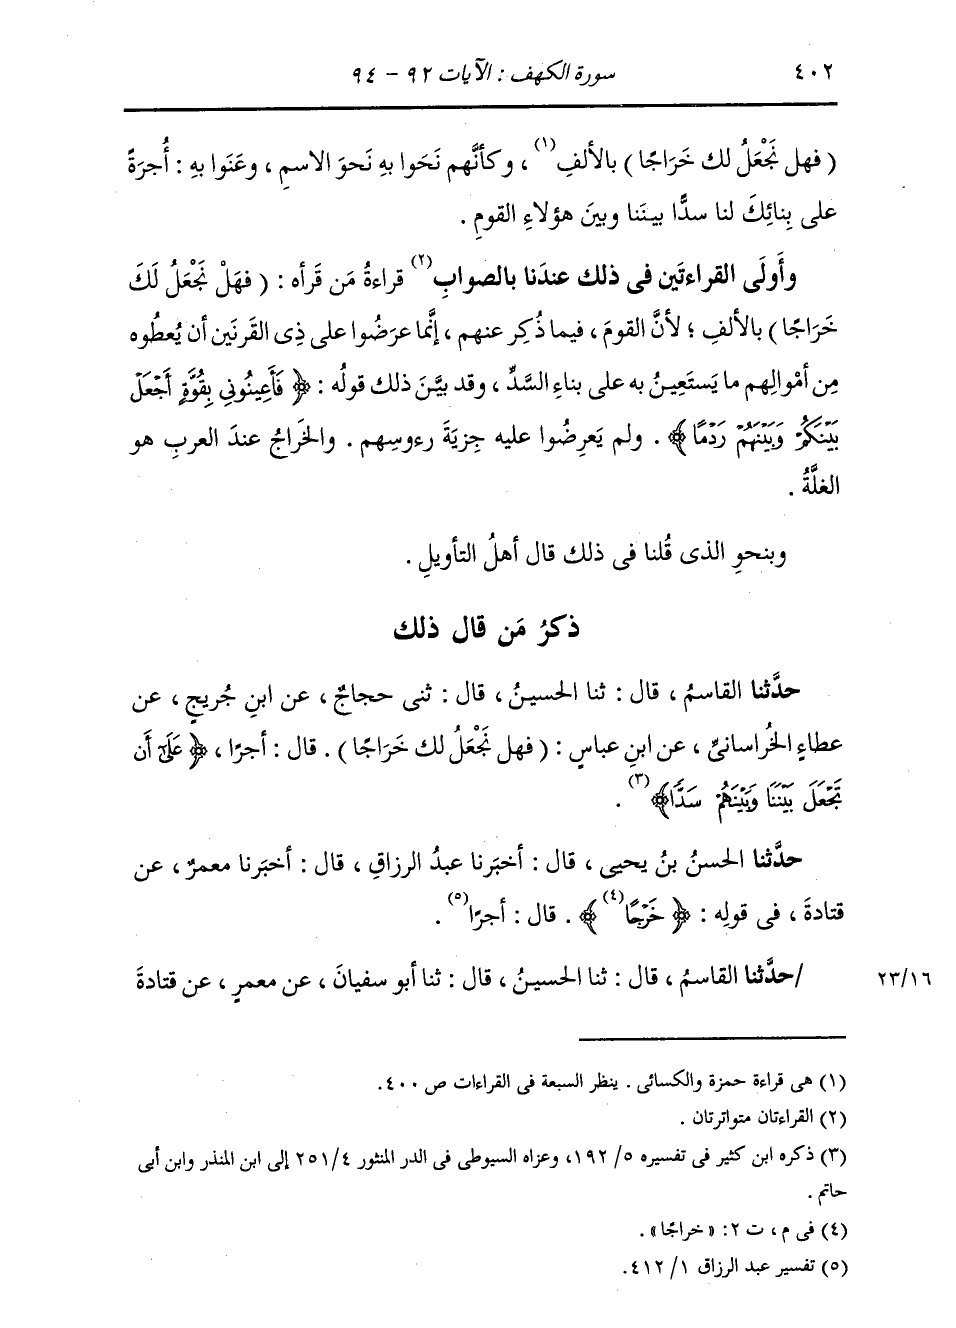 ٤٠٢ سورة الكهف : الآيات ٩٢ - ٩٤
( فهل نَجْعَلُ لك خَرَاجًا ) بالألفِ(١) ، وكأنَّهم نَحَوا بهِ نَحوَ الاسمِ ، وعَنَوا بهِ : أُجرَةً
على بِنائِكَ لنا سدًّا بينَنا وبينَ هؤلاءِ القومِ .
وأَولَى القراءتَين فى ذلك عندَنا بالصوابِ(٢) قراءةُ مَن قَرأه : ( فهَلْ نَجْعَلُ لَكَ
خَرَاجًا ) بالألفِ ؛ لأنَّ القومَ ، فيما ذُكِر عنهم ، إنَّما عرَضُوا على ذِى القَرنَين أن يُعطُوه
مِن أمْوالِهم ما يَستَعِينُ به على بناءِ السَّدِّ ، وقد بيَّنَ ذلك قولُه : ﴿ فَأَعِينُونِي بِقُوَّةٍ أَجْعَلْ
بَيْنَكُمْ وَبَيْنَهُمْ رَدْمًا ﴾ . ولم يَعرِضُوا عليه جِزيَةَ رءوسِهم . والخَراجُ عندَ العربِ هو
الغلَّةُ .
وبنحوِ الذى قُلنا فى ذلك قال أهلُ التأويلِ .
ذكرُ مَن قال ذلك
حدَّثنا القاسمُ ، قال : ثنا الحسينُ ، قال : ثنى حجاجٌ ، عن ابنِ جُريجٍ ، عن
عطاءٍ الخُراسانىِّ ، عن ابنِ عباسٍ : ( فهل نَجْعَلُ لك خَرَاجًا ) . قال : أجرًا ، ﴿ عَلَىٰ أَن
تَجْعَلَ بَيْنَنَا وَبَيْنَهُمْ سَدًّا ﴾(٣) .
حدَّثنا الحسنُ بنُ يحيى ، قال : أخبَرنا عبدُ الرزاقِ ، قال : أخبَرنا معمرٌ ، عن
قتادةَ ، فى قولِه : ﴿ خَرْجًا(٤) ﴾ . قال : أجرًا(٥) .
٢٣/١٦ /حدَّثنا القاسمُ ، قال : ثنا الحسينُ ، قال : ثنا أبو سفيانَ ، عن معمرٍ ، عن قتادةَ
(١) هى قراءة حمزة والكسائى . ينظر السبعة فى القراءات ص ٤٠٠.
(٢) القراءتان متواترتان .
(٣) ذكره ابن كثير فى تفسيره ٥/ ١٩٢، وعزاه السيوطى فى الدر المنثور ٤/ ٢٥١ إلى ابن المنذر وابن أبى
حاتم .
(٤) فى م ، ت ٢: « خراجًا» .
(٥) تفسير عبد الرزاق ١/ ٤١٢.